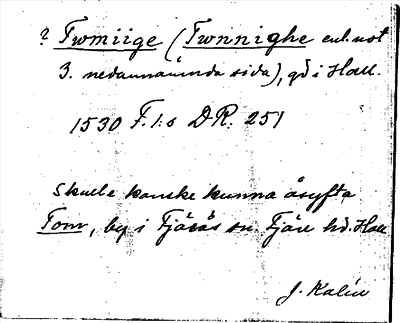 ? Twmiige (Twnnighe enl. not
3. nedannämnda sida), gd i Hall.
1530 F. 1:s DR. 251
Skulle kanske kunna åsyfta
Tom, by i Fjärås sn. Fjäre hd. Hall
J. Kalén